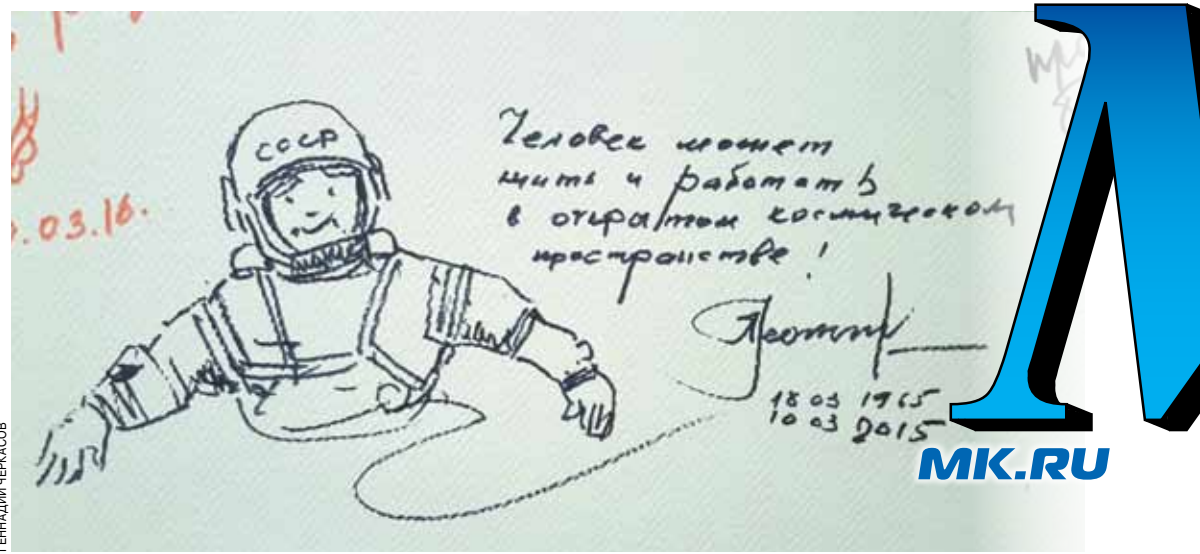 .03.16.
СССР
Человек может
жить и работать
в открытом космическом
пространстве!
Леонов
18 03 1965
10 03 2015
MK.RU
ГЕННАДИЙ ЧЕРКАСОВ